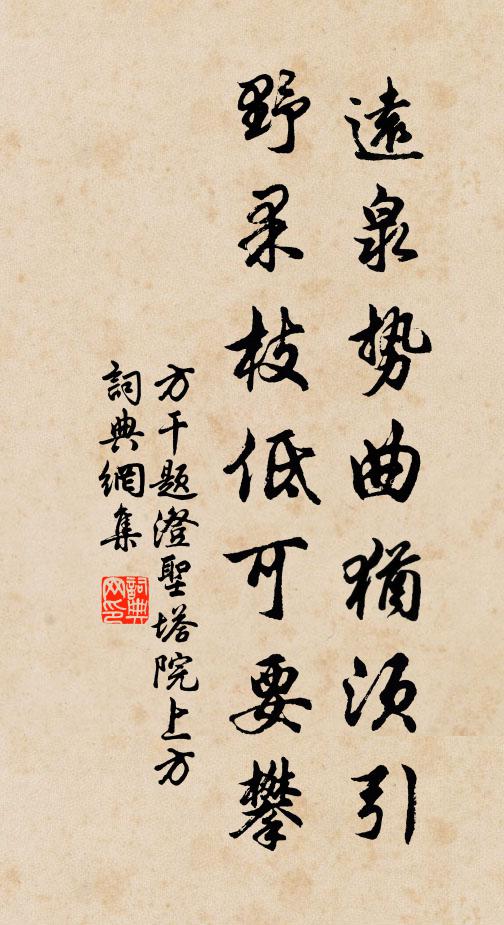 遠泉勢曲猶須引
野果枝低可要攀
方干题澄聖塔院上方
詞典網集
詞典
网印